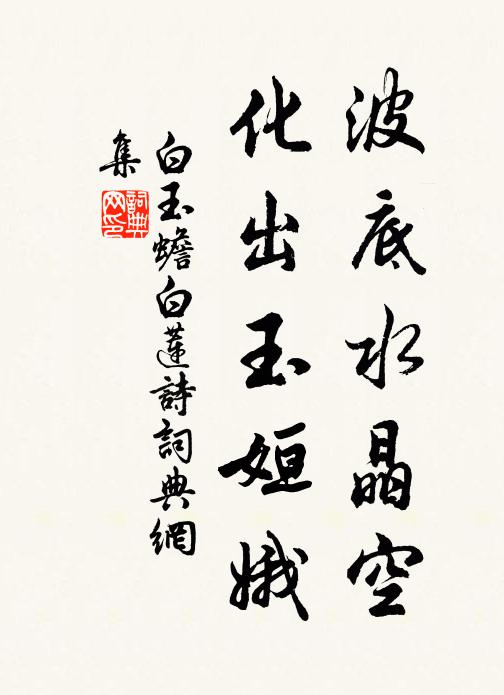 波底水晶空
化出玉姮娥
白玉蟾白莲詩詞典網
集
詞典
网印